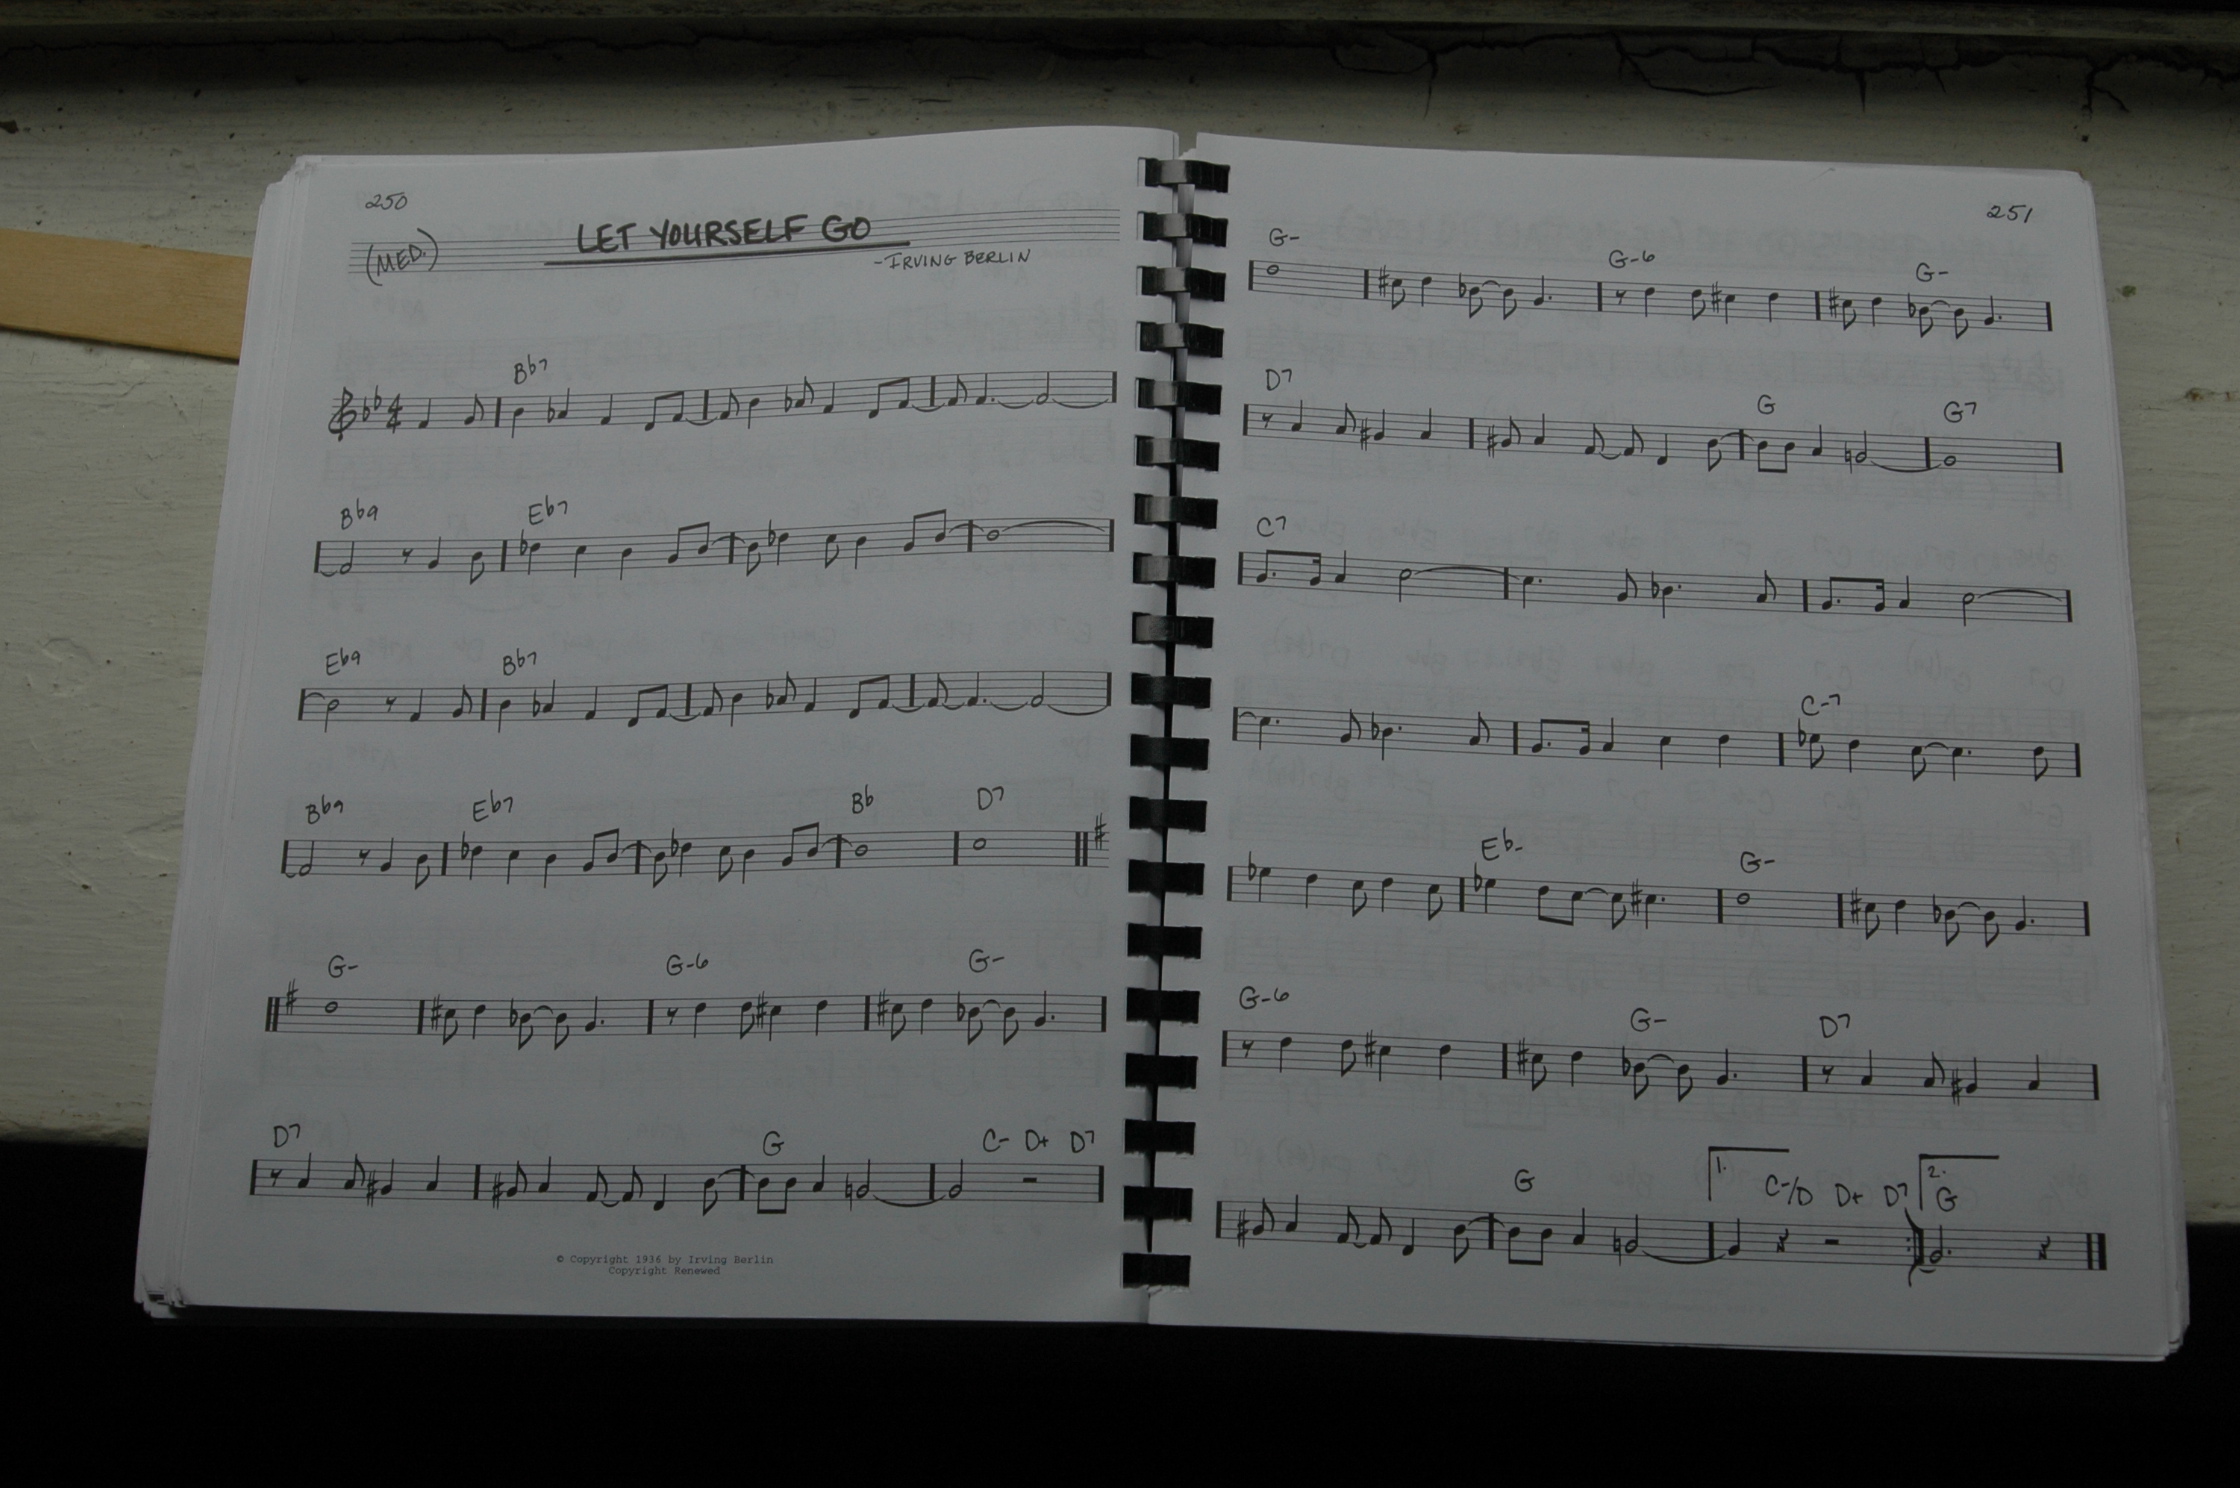 250
LET YOURSELF GO
(MED.)
-IRVING BERLIN
Bb7
Bb9 Eb7
Eb9 Bb7
Bb9 Eb7 Bb D7
G- G-6 G-
D7 G C- D+ D7
© Copyright 1936 by Irving Berlin
Copyright Renewed
251
G- G-6 G-
D7 G G7
C7
C-7
Eb- G-
G-6 G- D7
G 1. C-/D D+ D7 2. G